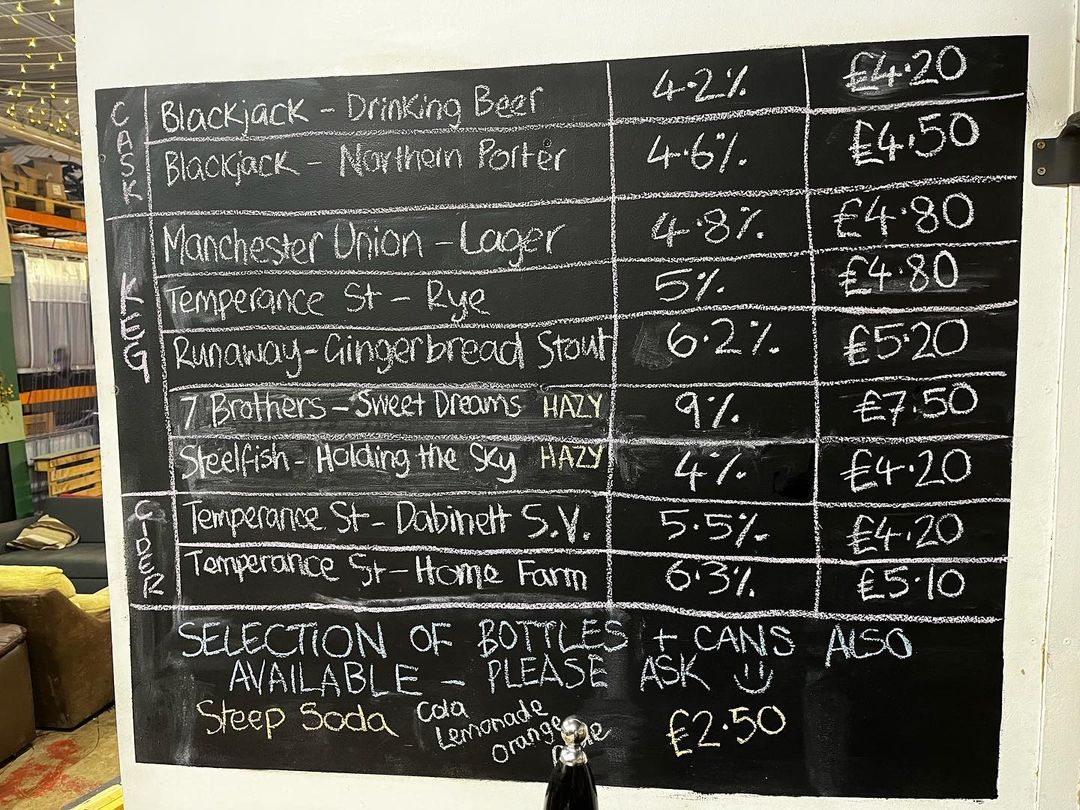 CASK
Blackjack - Drinking Beer 4.2% £4.20
Blackjack - Northern Porter 4.6% £4.50
KEG
Manchester Union - Lager 4.8% £4.80
Temperance St - Rye 5% £4.80
Runaway - Gingerbread Stout 6.2% £5.20
7 Brothers - Sweet Dreams HAZY 9% £7.50
Steelfish - Holding the Sky HAZY 4% £4.20
CIDER
Temperance St - Dabinett S.V. 5.5% £4.20
Temperance St - Home Farm 6.3% £5.10
SELECTION OF BOTTLES + CANS ALSO
AVAILABLE - PLEASE ASK
Steep Soda Cola £2.50
Lemonade